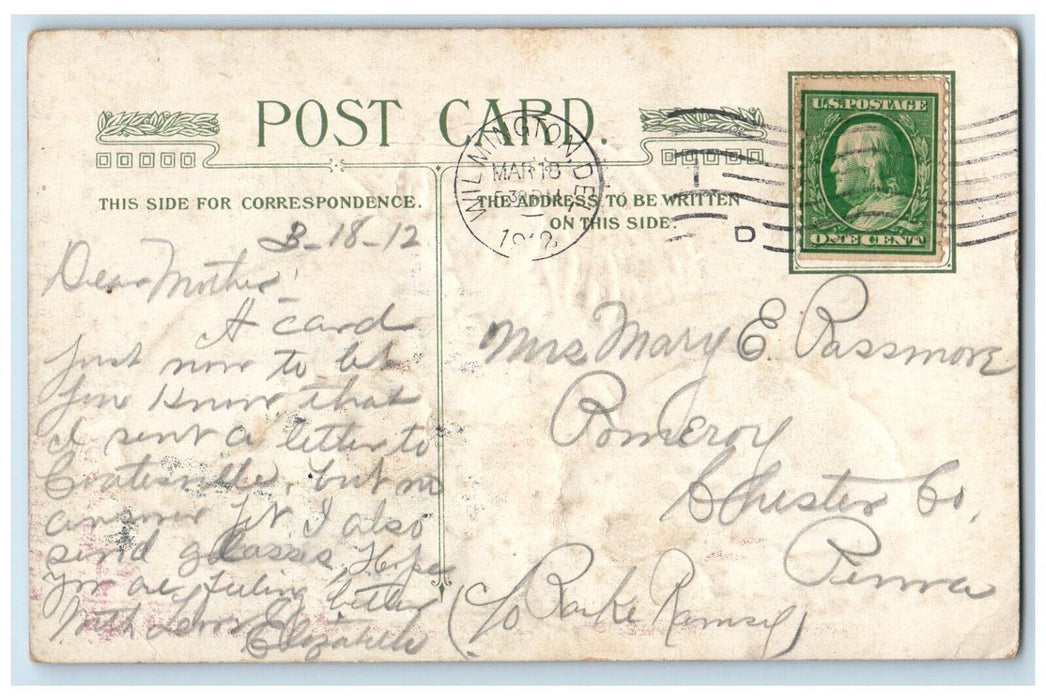 POST CARD.
THIS SIDE FOR CORRESPONDENCE.
THE ADDRESS TO BE WRITTEN
ON THIS SIDE.
WILMINGTON, DEL
MAR 18
5 30 PM
1912
D
U.S. POSTAGE
ONE CENT
3-18-12
Dear Mother
A card
Just now to let
you know that
I sent a letter to
Coatesville, but no
answer yet I also
send glasses, Hope
you are feeling better
With Love
Elizabeth
Mrs Mary E. Passmore
Pomeroy
Chester Co,
Penna
(c/o Ramsey)